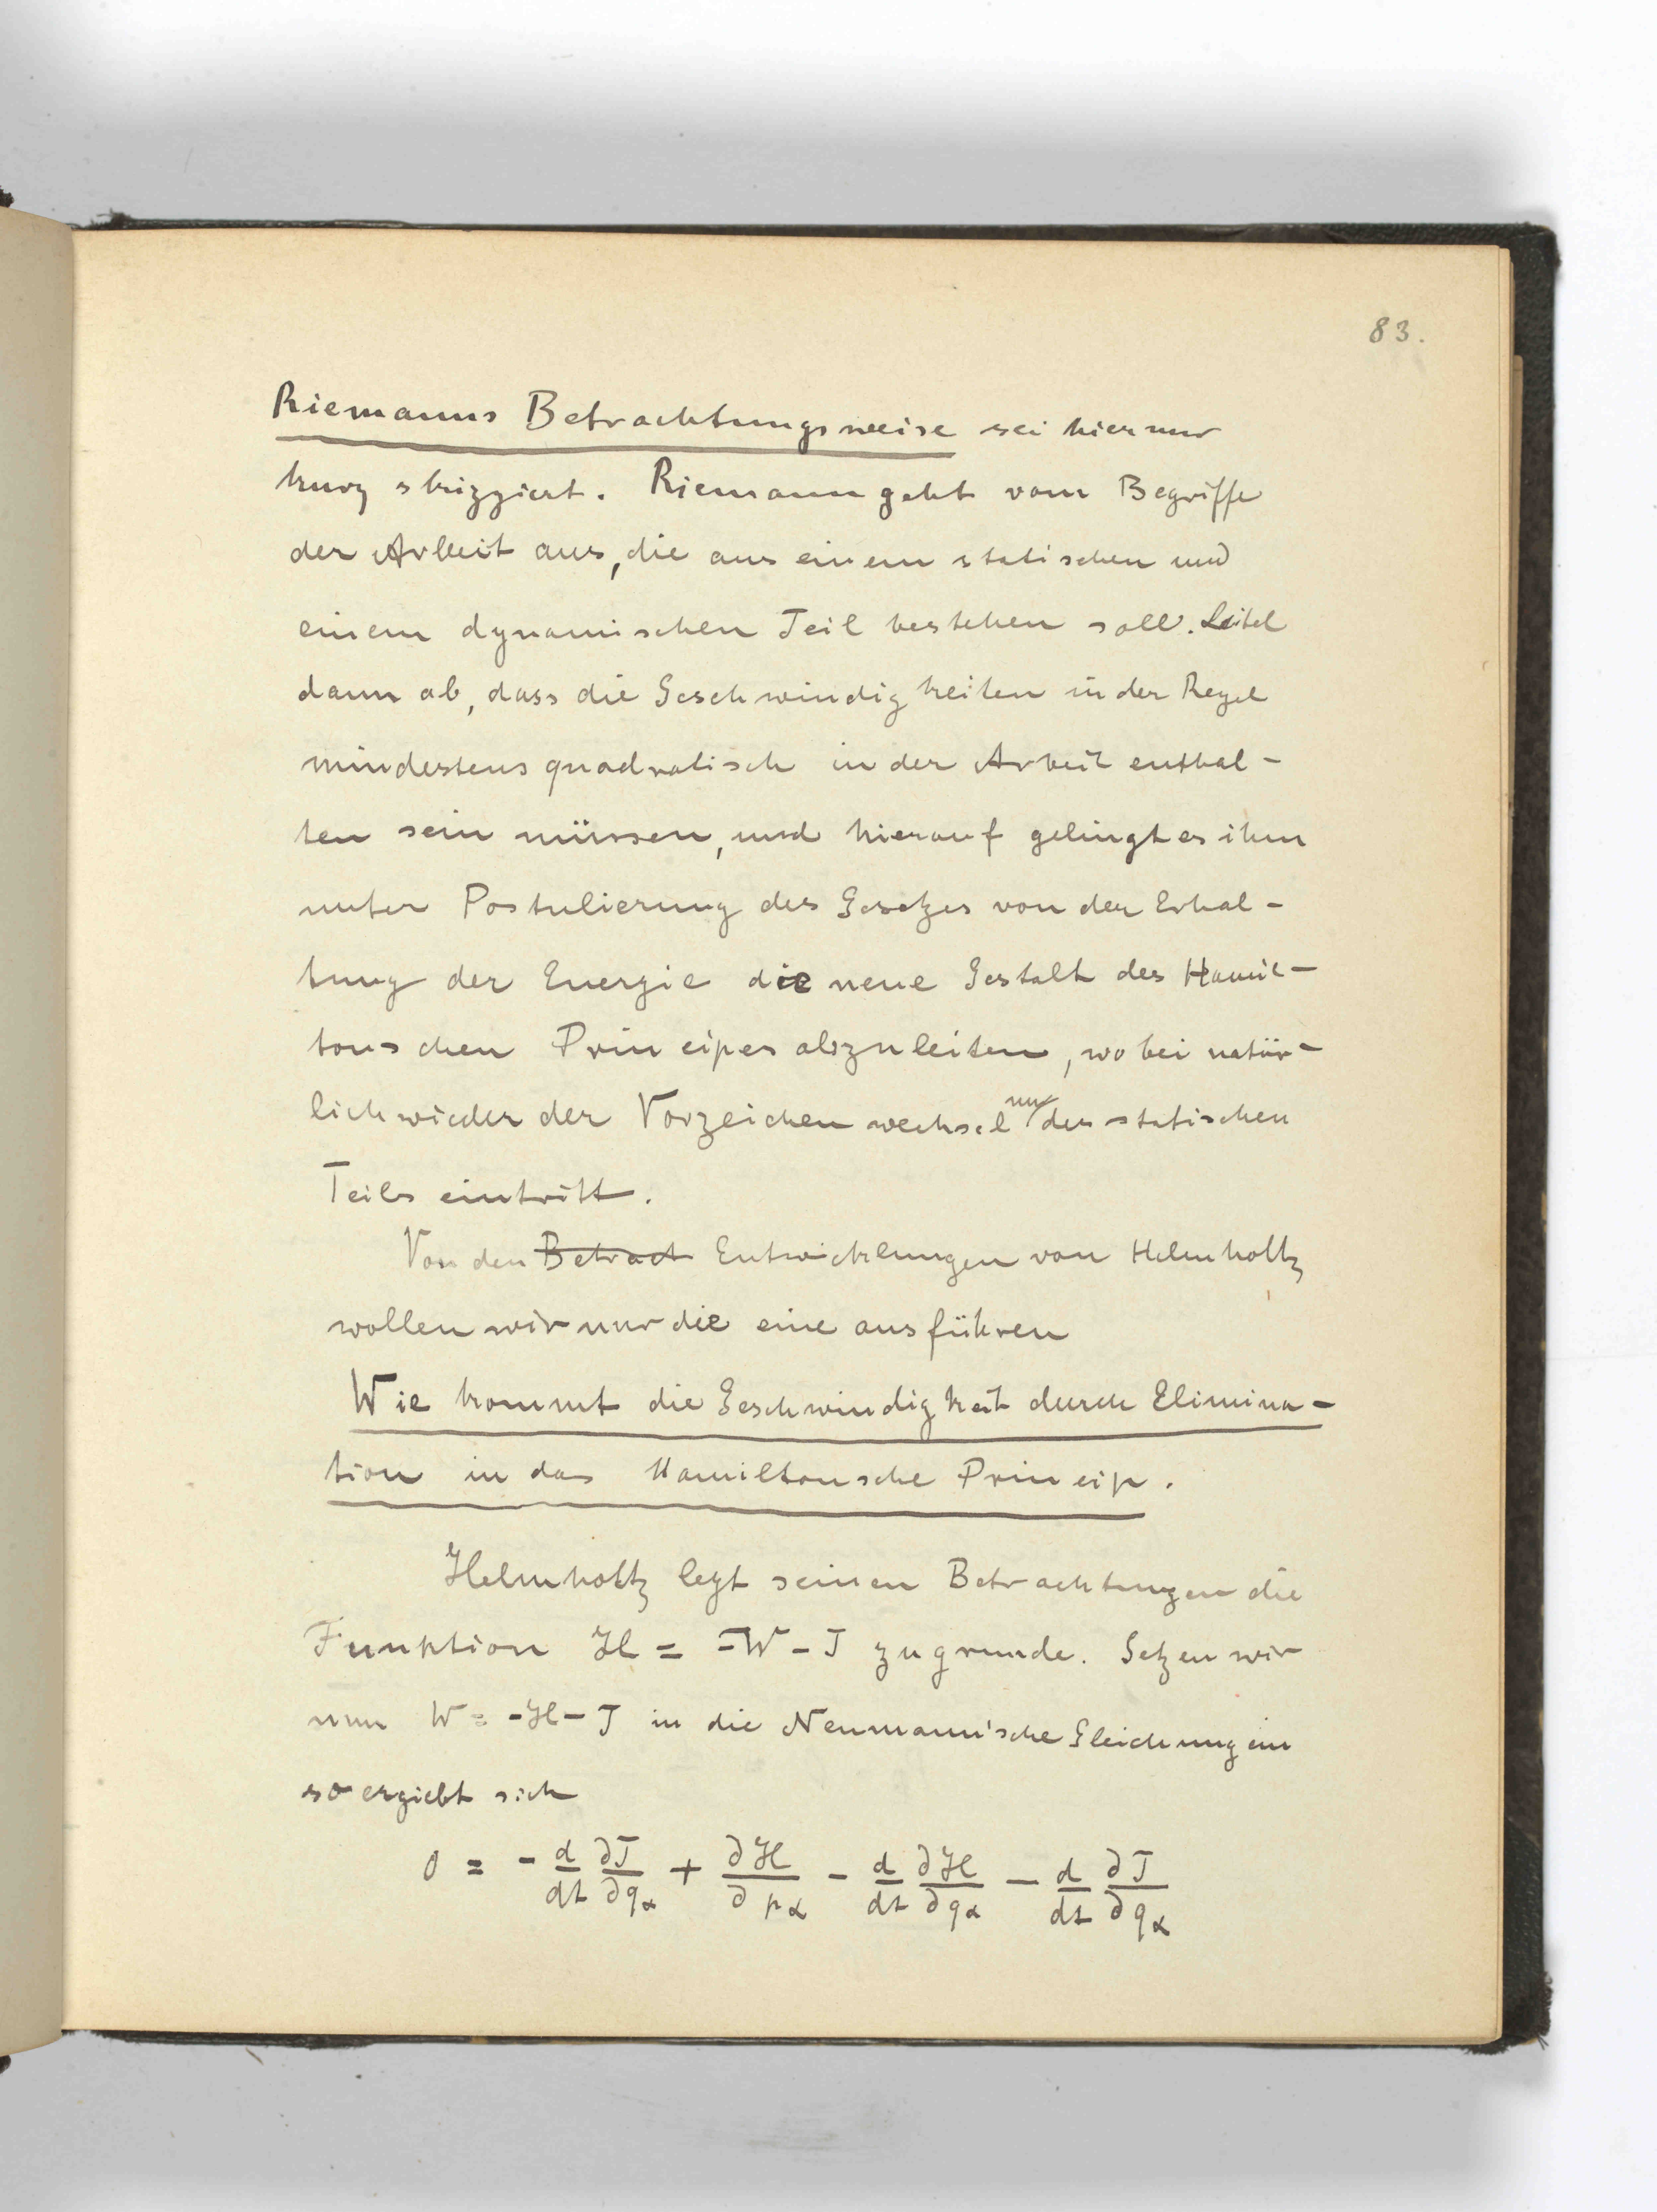 83.
Riemanns Betrachtungsweise sei hier nur
kurz skizziert. Riemann geht vom Begriffe
der Arbeit aus, die aus einem statischen und
einem dynamischen Teil bestehen soll. Leitet
dann ab, dass die Geschwindigkeiten in der Regel
mindestens quadratisch in der Arbeit enthal-
ten sein müssen, und hierauf gelingt es ihm
unter Postulierung des Gesetzes von der Erhal-
tung der Energie die neue Gestalt des Hamil-
tonschen Principes abzuleiten, wobei natür-
lich wieder der Vorzeichenwechsel nur des statischen
Teils eintritt.
Von den Betract Entwicklungen von Helmholtz
wollen wir nur die eine ausführen
Wie kommt die Geschwindigkeit durch Elimina-
tion in das Hamiltonsche Princip.
Helmholtz legt seinen Betrachtungen die
Funktion H = -W - T zugrunde. Setzen wir
nun W = -H - T in die Neumann'sche Gleichung ein
so ergiebt sich
0 = - d/dt ∂T/∂qα + ∂H/∂pα - d/dt ∂H/∂qα - d/dt ∂T/∂qα